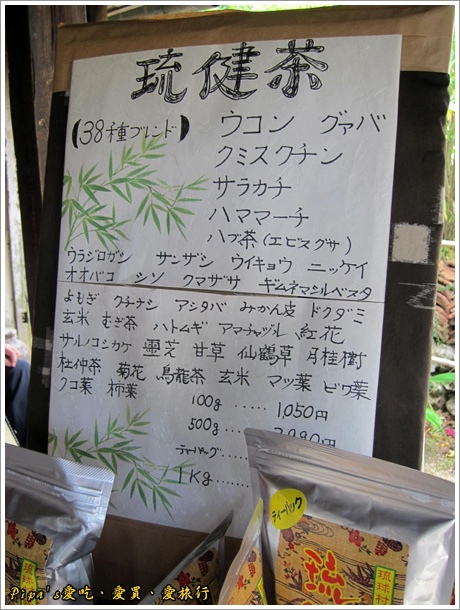 琉健茶
【38種ブレンド】
ウコン グァバ
クミスクチン
サラカチ
ハママーチ
ハブ茶(エビスグサ)
ウラジロガシ サンザシ ウイキョウ ニッケイ
オオバコ シソ クマザサ ギムネマシルベスタ
よもぎ クチナシ アシタバ みかん皮 ドクダミ
玄米 むぎ茶 ハトムギ アマチャヅル 紅花
サルノコシカケ 霊芝 甘草 仙鶴草 月桂樹
杜仲茶 菊花 烏龍茶 玄米 マツ葉 ビワ葉
クコ葉 柿葉
100g ...... 1,050円
500g ......
ティーパック
1kg ......
ティーパック
琉球村
琉
Pipa's愛吃、愛買、愛旅行